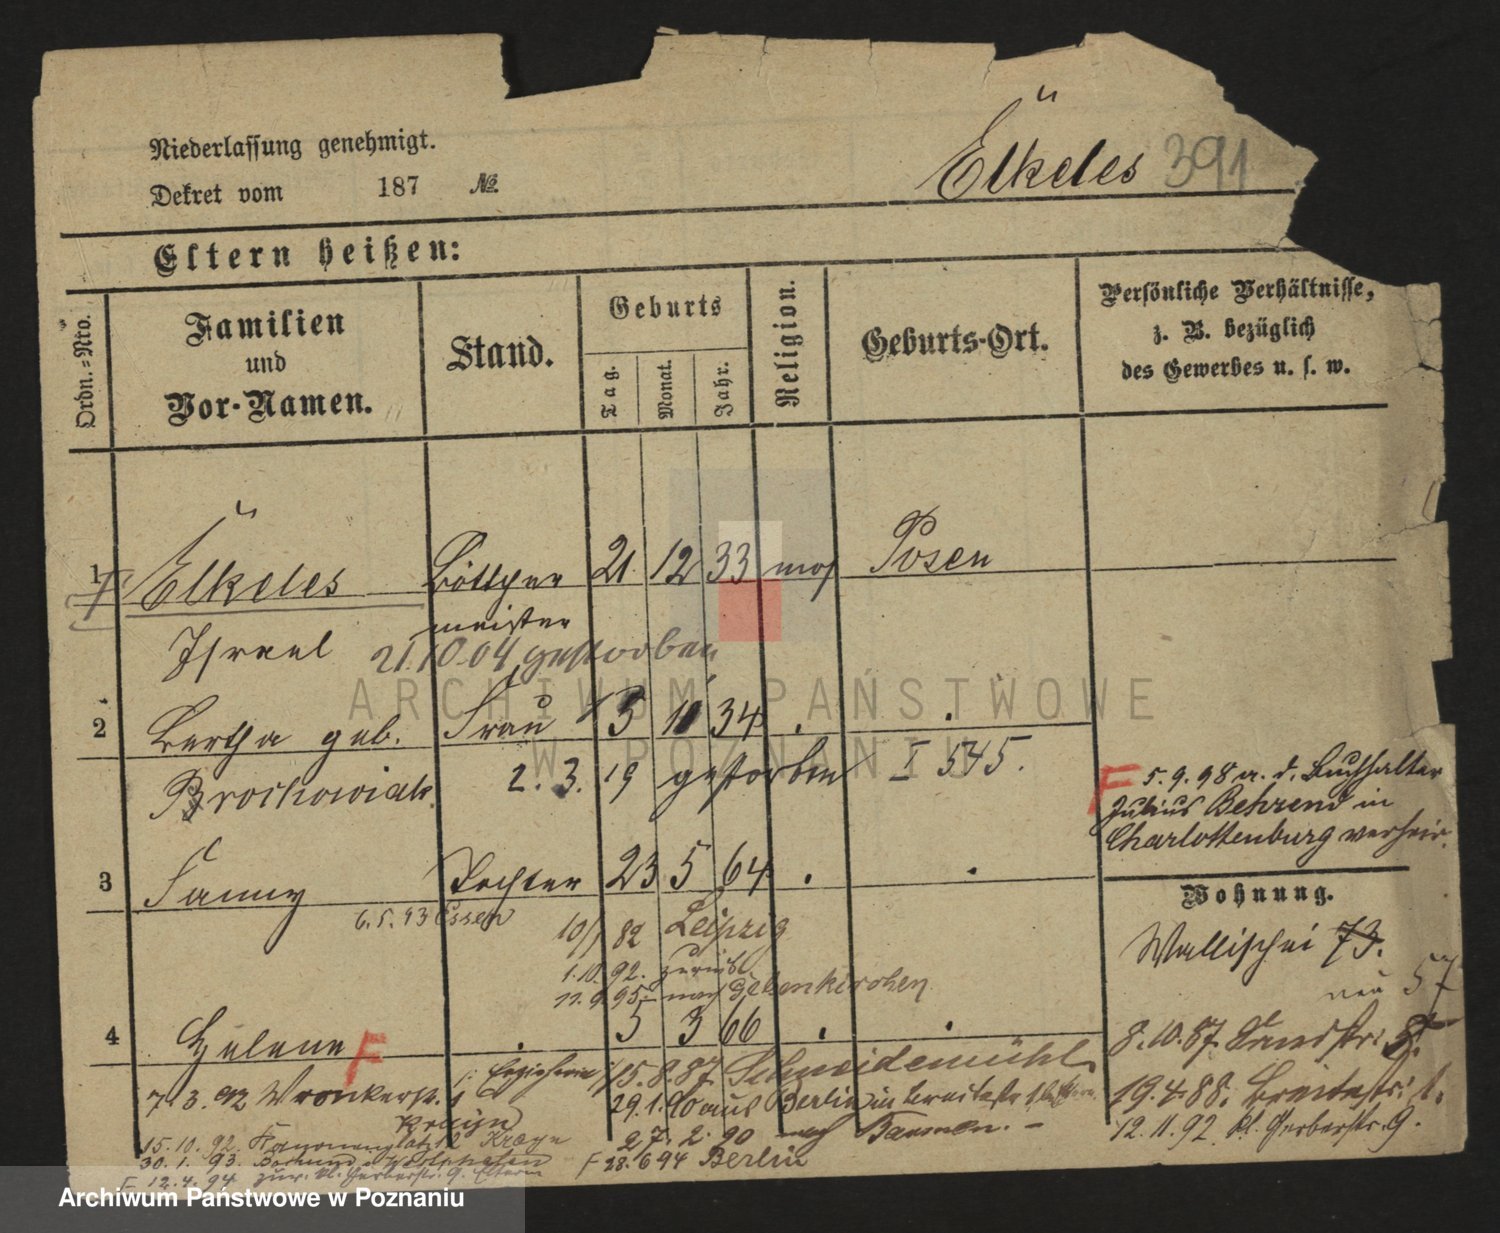 Niederlassung genehmigt.
Dekret vom 187 №
Elkeles 391
Eltern heißen:
Ordn.=Nro.
Familien
und
Vor-Namen.
Stand.
Geburts
Tag.
Monat.
Jahr.
Religion.
Geburts-Ort.
Persönliche Verhältnisse,
z. B. bezüglich
des Gewerbes u. s. w.
1 Elkeles Böttcher 21 12 33 mos Posen
meister
Israel 21.10.04 gestorben
2 Bertha geb. Frau 34
Brockowiak 2. 3. 19 gestorben I 545.
F 5. 9. 98 a. d. Buchhalter
Julius Behrend in
Charlottenburg verheir.
3 Fanny Tochter 23 5 64
6. 5. 93 Essen
82 Leipzig
1.10.92. zurück
95 nach Gelsenkirchen
Wohnung.
Wallischei 73.
neu 57
4 Helene F 5 3 66
8.10.87.
15.8.87. Schneidemühl
7.3.92 Wronkerstr.
29.1.90 aus Berlin
19.4.88. Breitestr.
27. 2. 90 nach Barmen. –
12. 11. 92. kl. Gerberstr. 9.
15. 10. 92. Kanonenplatz 12
30. 1. 93.
F 28. 6 94 Berlin
F 12. 4. 94 zur. kl. Gerberstr. 9. Eltern
ARCHIWUM PAŃSTWOWE
W POZNANIU
Archiwum Państwowe w Poznaniu